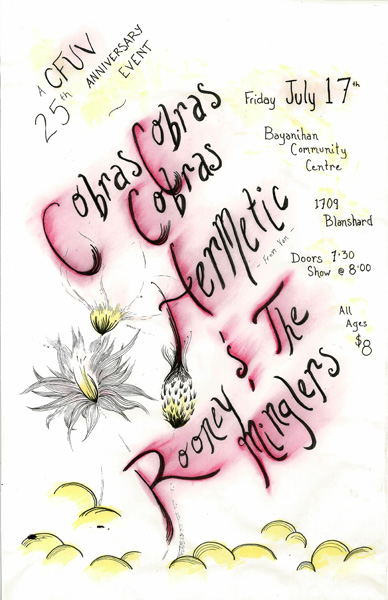 A CFUV
25th ANNIVERSARY
EVENT
Friday July 17th
Bayanihan
Community
Centre
1709
Blanshard
Doors 7:30
Show @ 8:00
All
Ages
$8
Cobras Cobras
Cobras
Hermetic
- From Van -
Rooney & The
Minglers